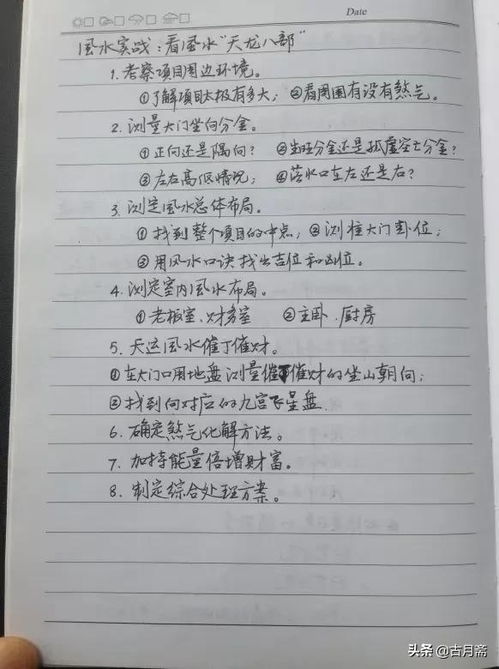 Date
風水实战：看風水“天龙八部”
1. 考察项目周边环境。
①了解项目太极有多大；②看周围有没有煞气。
2. 测量大门坐向分金。
①正向还是隅向？②当旺分金还是孤虚空亡分金？
③左右高低情况；④落水口在左还是右？
3. 测定風水总体布局。
①找到整个项目的中点；②测准大门卦位；
③用风水口诀找出吉位和凶位。
4. 测定室内風水布局。
①老板室、财务室 ②主卧、厨房
5. 天运風水催丁催财。
①在大门口用地盘测量催丁催财的坐山朝向；
②找到向对应的九宫飞星盘
6. 确定煞气化解方法。
7. 加持能量倍增财富。
8. 制定综合处理方案。
头条 @古月斋